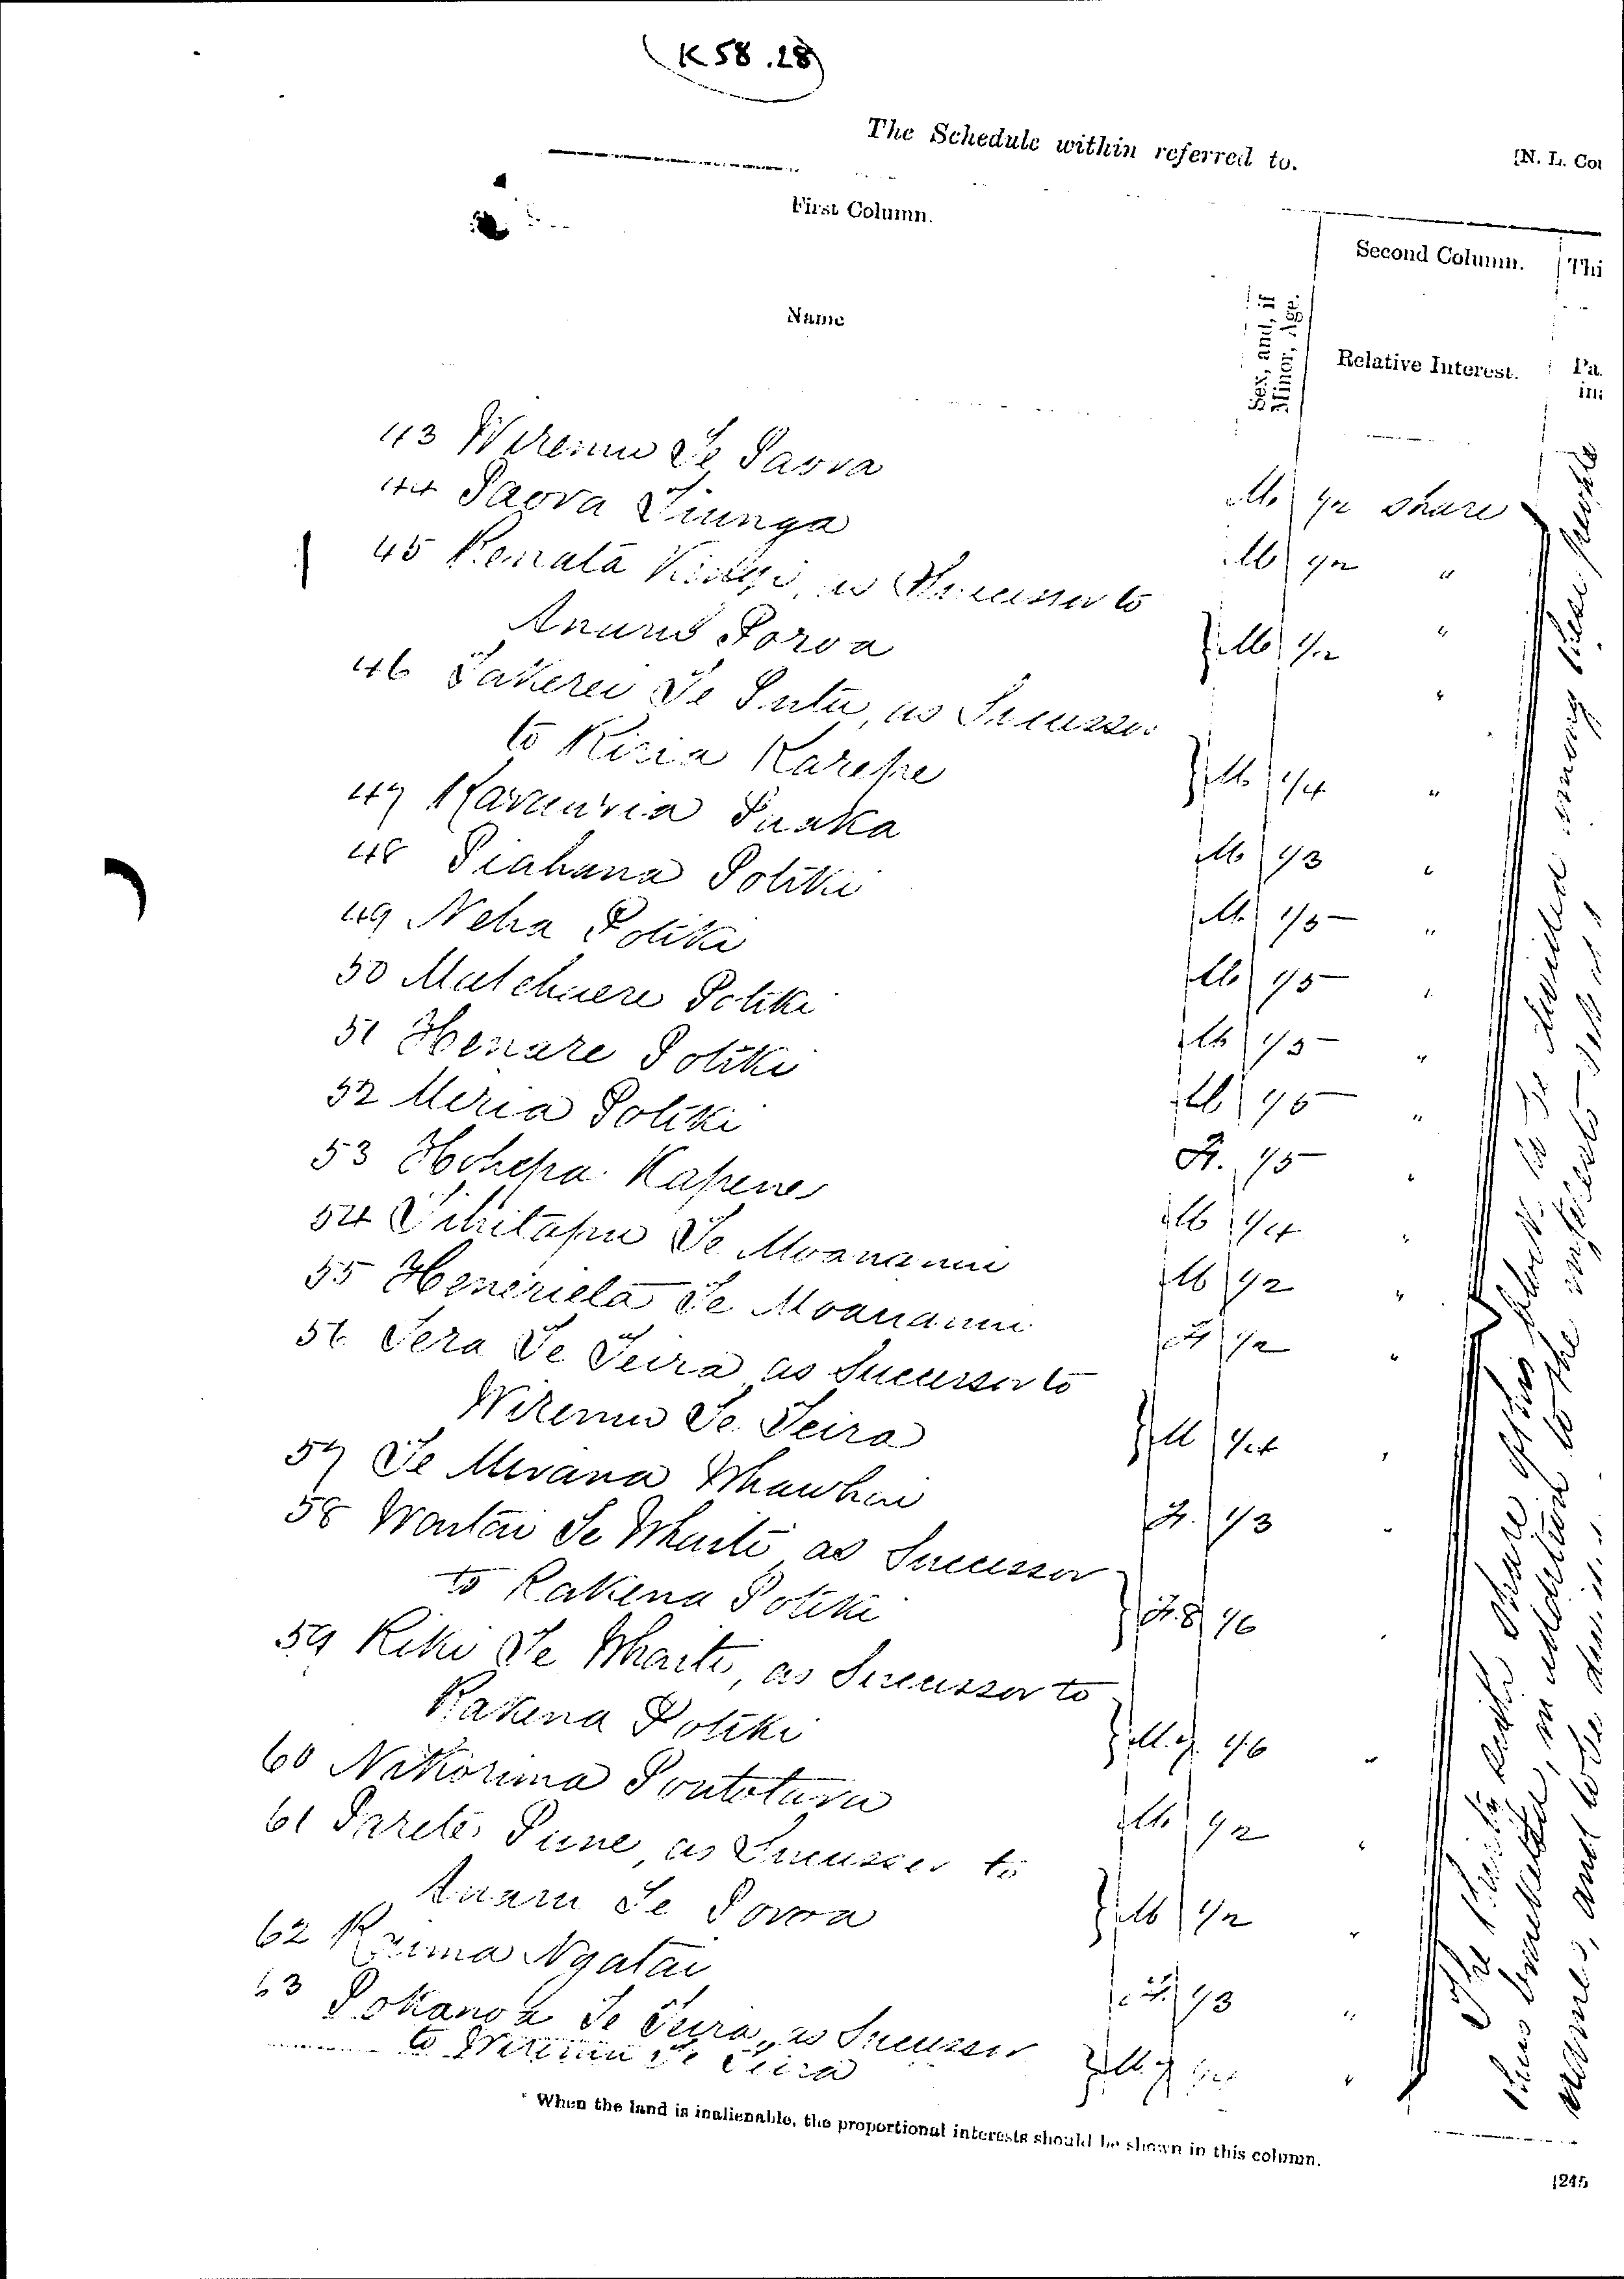 K58.28
The Schedule within referred to.
[N. L. Cou
First Column.
Second Column.
Thi
Name
Sex, and, if
Minor, Age.
Relative Interest.
Pa
43 Wiremu Te Paora M. 1/2 share
44 Paora Tiunga M 1/2 "
45 Renata Kingi, as Successor to
Anaru Poroa } M 1/2 "
46 Takerei Te Putu, as Successor
to Kiria Karepe } M 1/4 "
47 Karauria Puaka M. 1/3 "
48 Piahana Potiki M. 1/5 "
49 Neha Potiki M 1/5 "
50 Matehaere Potiki M 1/5 "
51 Henare Potiki M 1/5 "
52 Meria Potiki F. 1/5 "
53 Hohepa Kapene M 1/4 "
54 Tihitapu Te Moananui M 1/2 "
55 Henerieta Te Moananui F 1/2 "
56 Tera Te Teira as Successor to
Wiremu Te Teira } M 1/4 "
57 Te Mirana Whawhai F. 1/3 "
58 Te Whaiti as Successor
to Rakena Potiki } F. 8 1/6 "
59 Riki Te Whaiti, as Successor to
Rakena Potiki } M. 1/6 "
60 Nikorima Poututeru M. 1/2 "
61 Parete Pune, as Successor to
Anaru Te Poroa } M 1/2 "
62 Ngatai F. 1/3 "
63 Te Teira, as Successor
to Wiremu Te Teira } M "
The share of this block is to be divided among these people
thus bracketed, in addition to the interests set
names, and to be
* When the land is inalienable, the proportional interests should be shown in this column.
[245